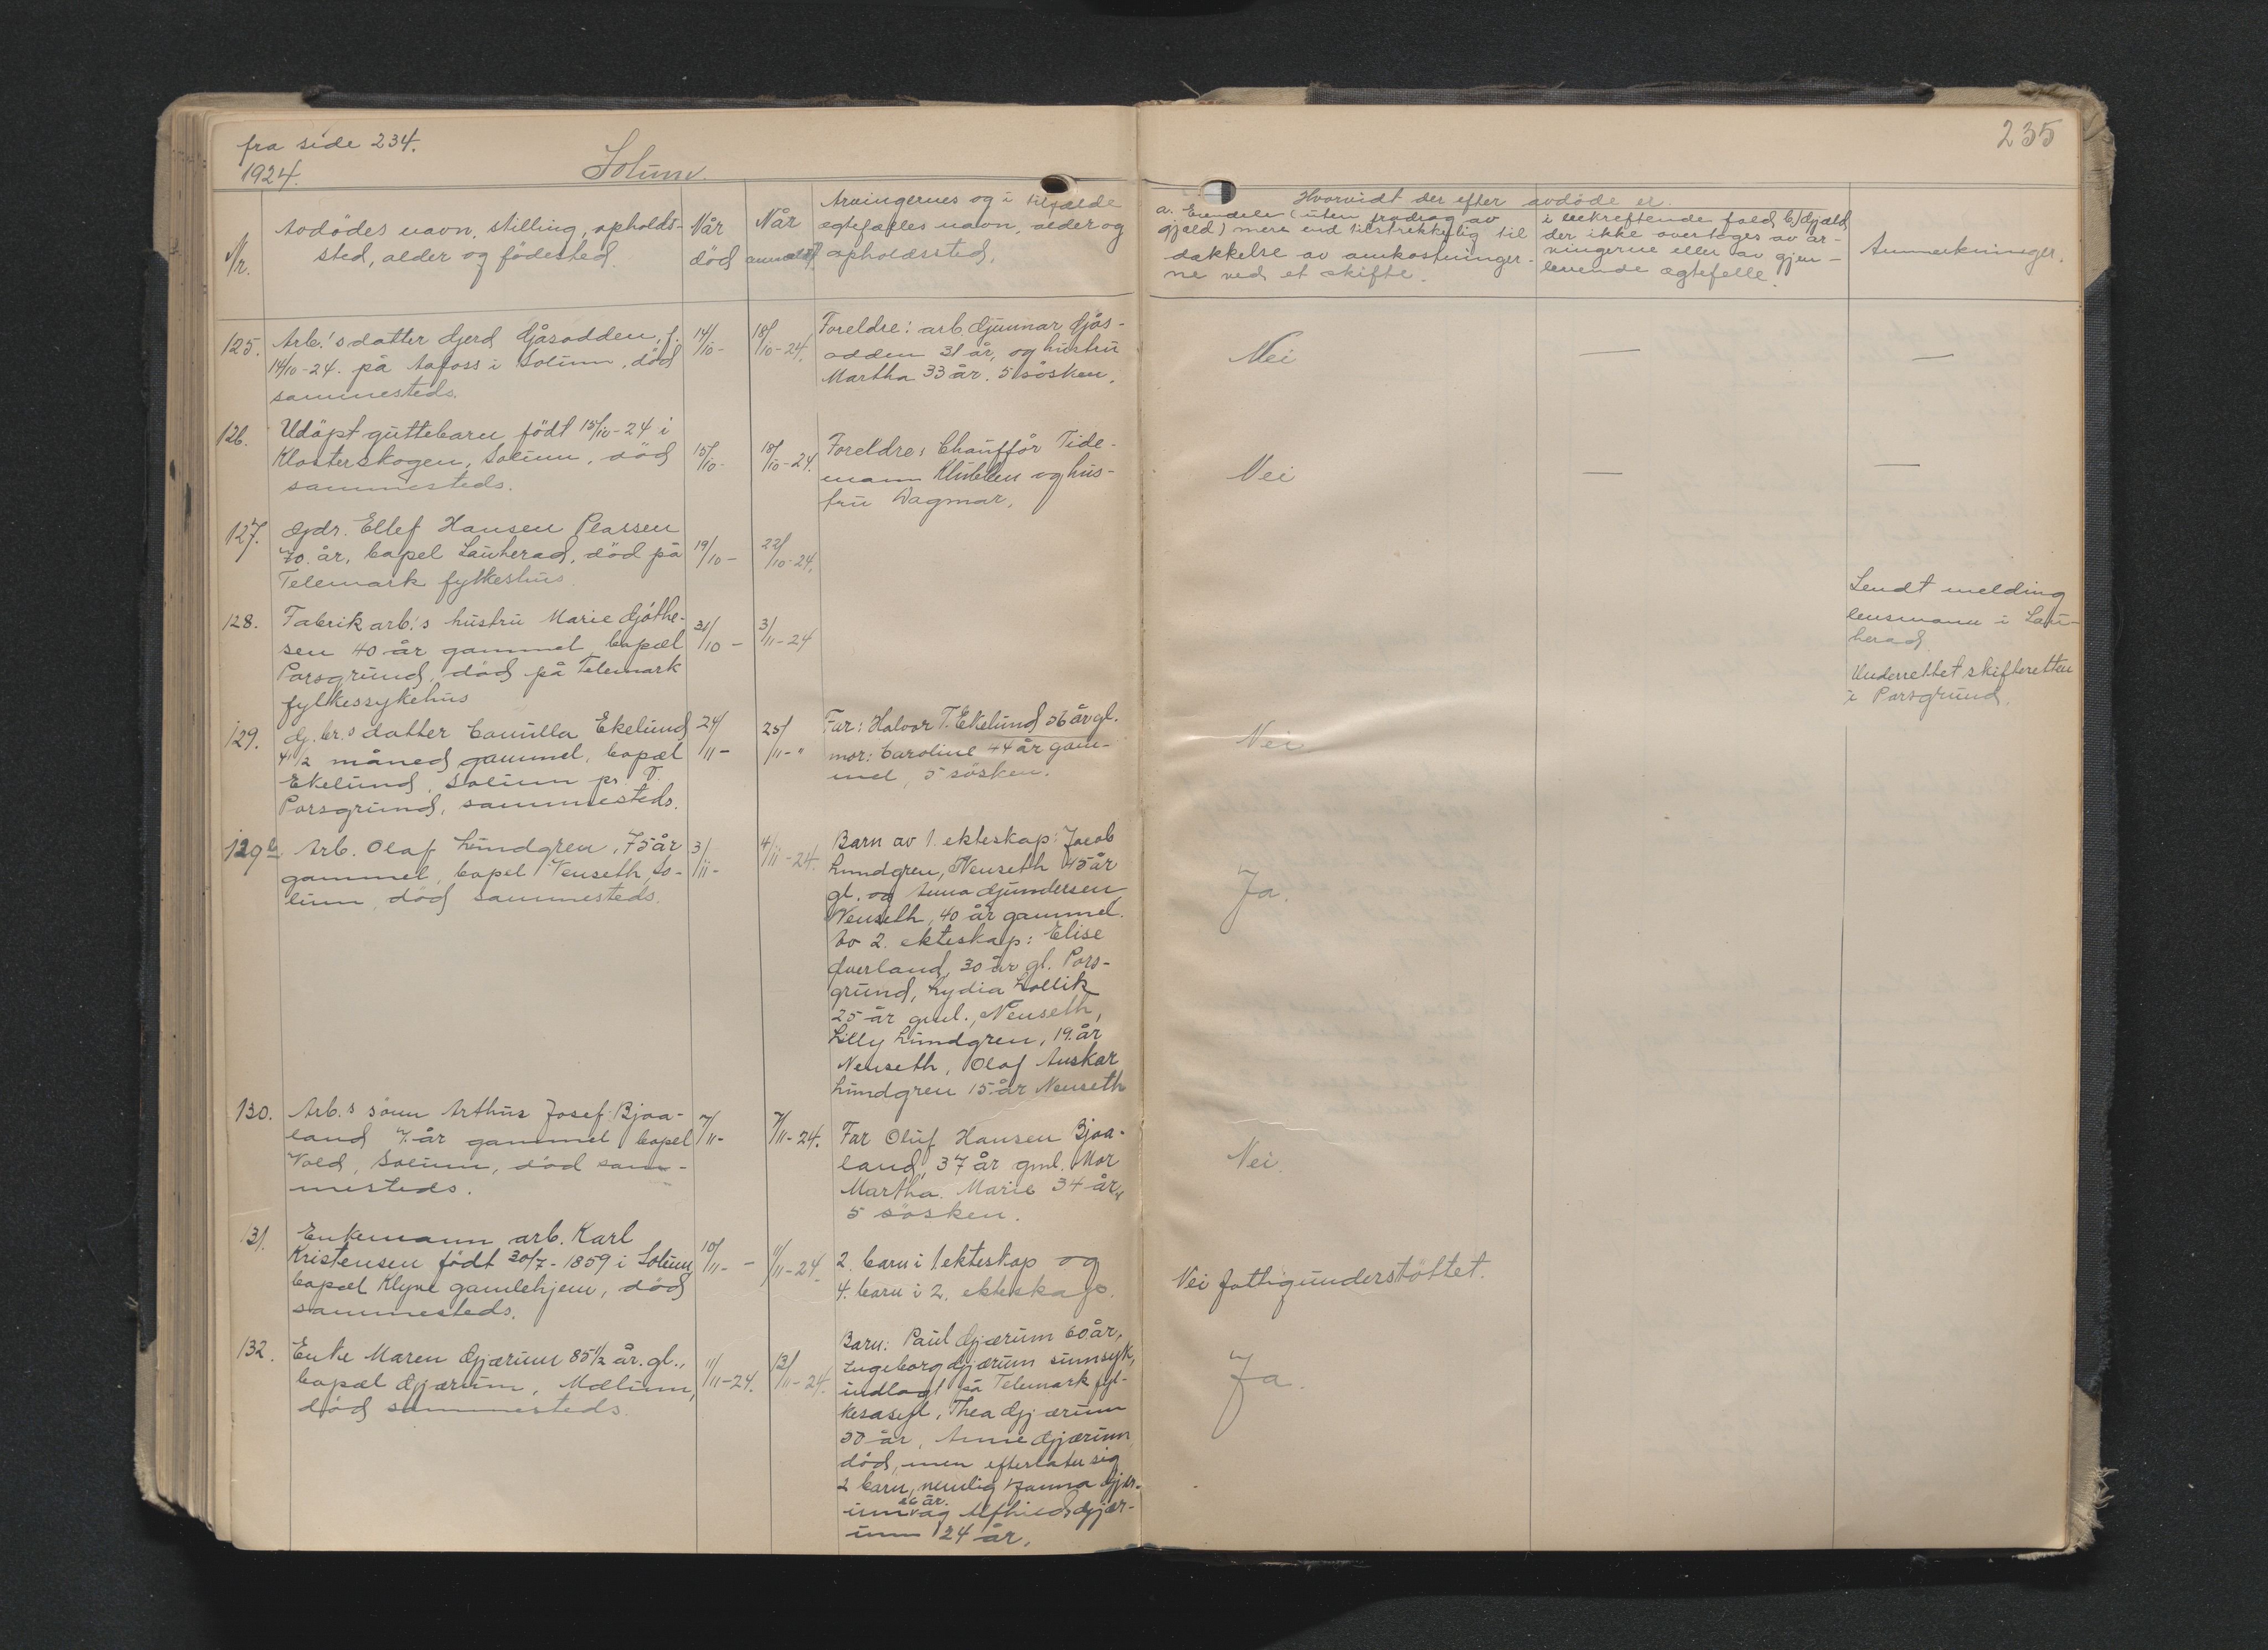 fra side 234.
1924.
Solum.
235
Nr.
Avdödes navn, stilling, opholds-
sted, alder og födested.
Når
död
Når
anmeldt.
Arvingernes og i tilfælde
egtefælles navn, alder og
opholdssted.
Hvorvidt der efter avdöde er.
a. Eiendele (uten fradrag av
gjæld) mere end tilstrekkelig til
dækkelse av omkostninger-
ne ved et skifte.
i bekreftende fald, b) Gjæld
der ikke overtages av ar-
vingerne eller av gjen-
levende egtefelle.
Anmerkninger.
125. Arb.'s datter Gjerd Gjåsodden, f.
14/10-24. på Aafoss i Solum, död
sammesteds.
14/10-
18/10-24.
Foreldre: arb. Gunnar Gjås-
odden 31 år, og hustru
Martha 33 år. 5 sösken.
Nei
—
—
126. Udöpt guttebarn födt 15/10-24 i
Klosterskogen, Solum, död
sammesteds.
15/10-
18/10-24.
Foreldre: Chaufför Tide-
mann Klubben og hus-
tru Dagmar.
Nei
—
—
127. Gdr. Ellef Hansen Plassen
70 år, bopel Lauherad, död på
Telemark fylkeshus.
19/10-
22/10-24.
Sendt melding
lensmann i Lau-
herad.
128. Fabrik arb.'s hustru Marie Göthe-
sen 40 år gammel, bopæl
Porsgrund, död på Telemark
fylkessykehus
31/10-
3/11-24
Underrettet skifteretten
i Porsgrund.
129. G. br.s datter Camilla Ekelund
4 1/2 måned gammel, bopæl
Ekelund, Solum pr.
Porsgrund, sammesteds.
24/11-
25/11-"
Far: Halvor T. Ekelund 56 år gl.
mor: Caroline 44 år gam-
mel, 5 sösken.
Nei
129b Arb. Olaf Lundgren, 75 år
gammel, bopel Nenseth, So-
lum, död sammesteds.
3/11-
4/11-24.
Barn av 1. ekteskap: Jacob
Lundgren, Nenseth 45 år
gl. og Anna Gundersen
Nenseth, 40 år gammel.
Av 2. ekteskap: Elise
Överland, 30 år gl. Pors-
grund, Lydia Lollik
25 år gml., Nenseth,
Lilly Lundgren, 19. år
Nenseth, Olaf Anskar
Lundgren 15 år Nenseth
Ja.
130. Arb.s sönn Arthur Josef Bjaa-
land 7. år gammel bopel
Vold, Solum, död sam-
mesteds.
7/11-
7/11-24.
Far Oluf Hansen Bjaa-
land, 37 år gml. Mor
Martha Marie 34 år,
5 sösken.
Nei.
131. Enkemann arb. Karl
Kristensen födt 30/7-1859 i Solum
bopæl Klyve gamlehjem, död
sammesteds.
10/11- -
11/11-24.
2. barn i 1 ekteskap og
4. barn i 2. ekteskap.
Nei fattigunderstöttet.
132. Enke Maren Gjærum 85 1/2 år. gl.,
bopæl Gjærum, Mælum,
död sammesteds.
11/11-24.
13/11-24.
Barn: Paul Gjærum 60 år,
Ingeborg Gjærum sinnsyk,
indlagt på Telemark fyl-
kesasyl, Thea Gjærum
50 år, Anne Gjærum,
död, men efterlater sig
2 barn, nemlig Hanna Gjær-
um 26 år. og Alfhild Gjær-
um 24 år.
Ja.